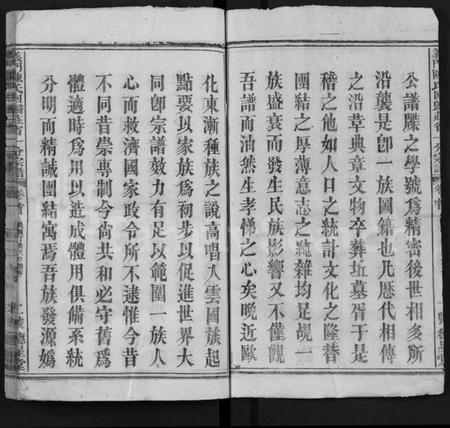 公譜牒之學號爲精密後世相多所
沿襲是卽一族圖籍也凡歷代相傳
之沿革典章文物卒葬坵墓胥于是
稽之他如人日之統計文化之隆替
團結之厚薄意志之純雜均足覘一
族盛衰而發生民族影響又不僅觀
吾譜而油然生孝悌之心矣晚近歐
化東漸種族之說高唱入雲國族起
點要以家族爲初步以促進世界大
同卽宗譜效力有足以範圍一族人
心而救濟國家政令所不逮惟今昔
不同昔崇專制今尙共和必守舊爲
體適時爲用以造成體用俱備系統
分明而精誠團結寓焉吾族發源嬀